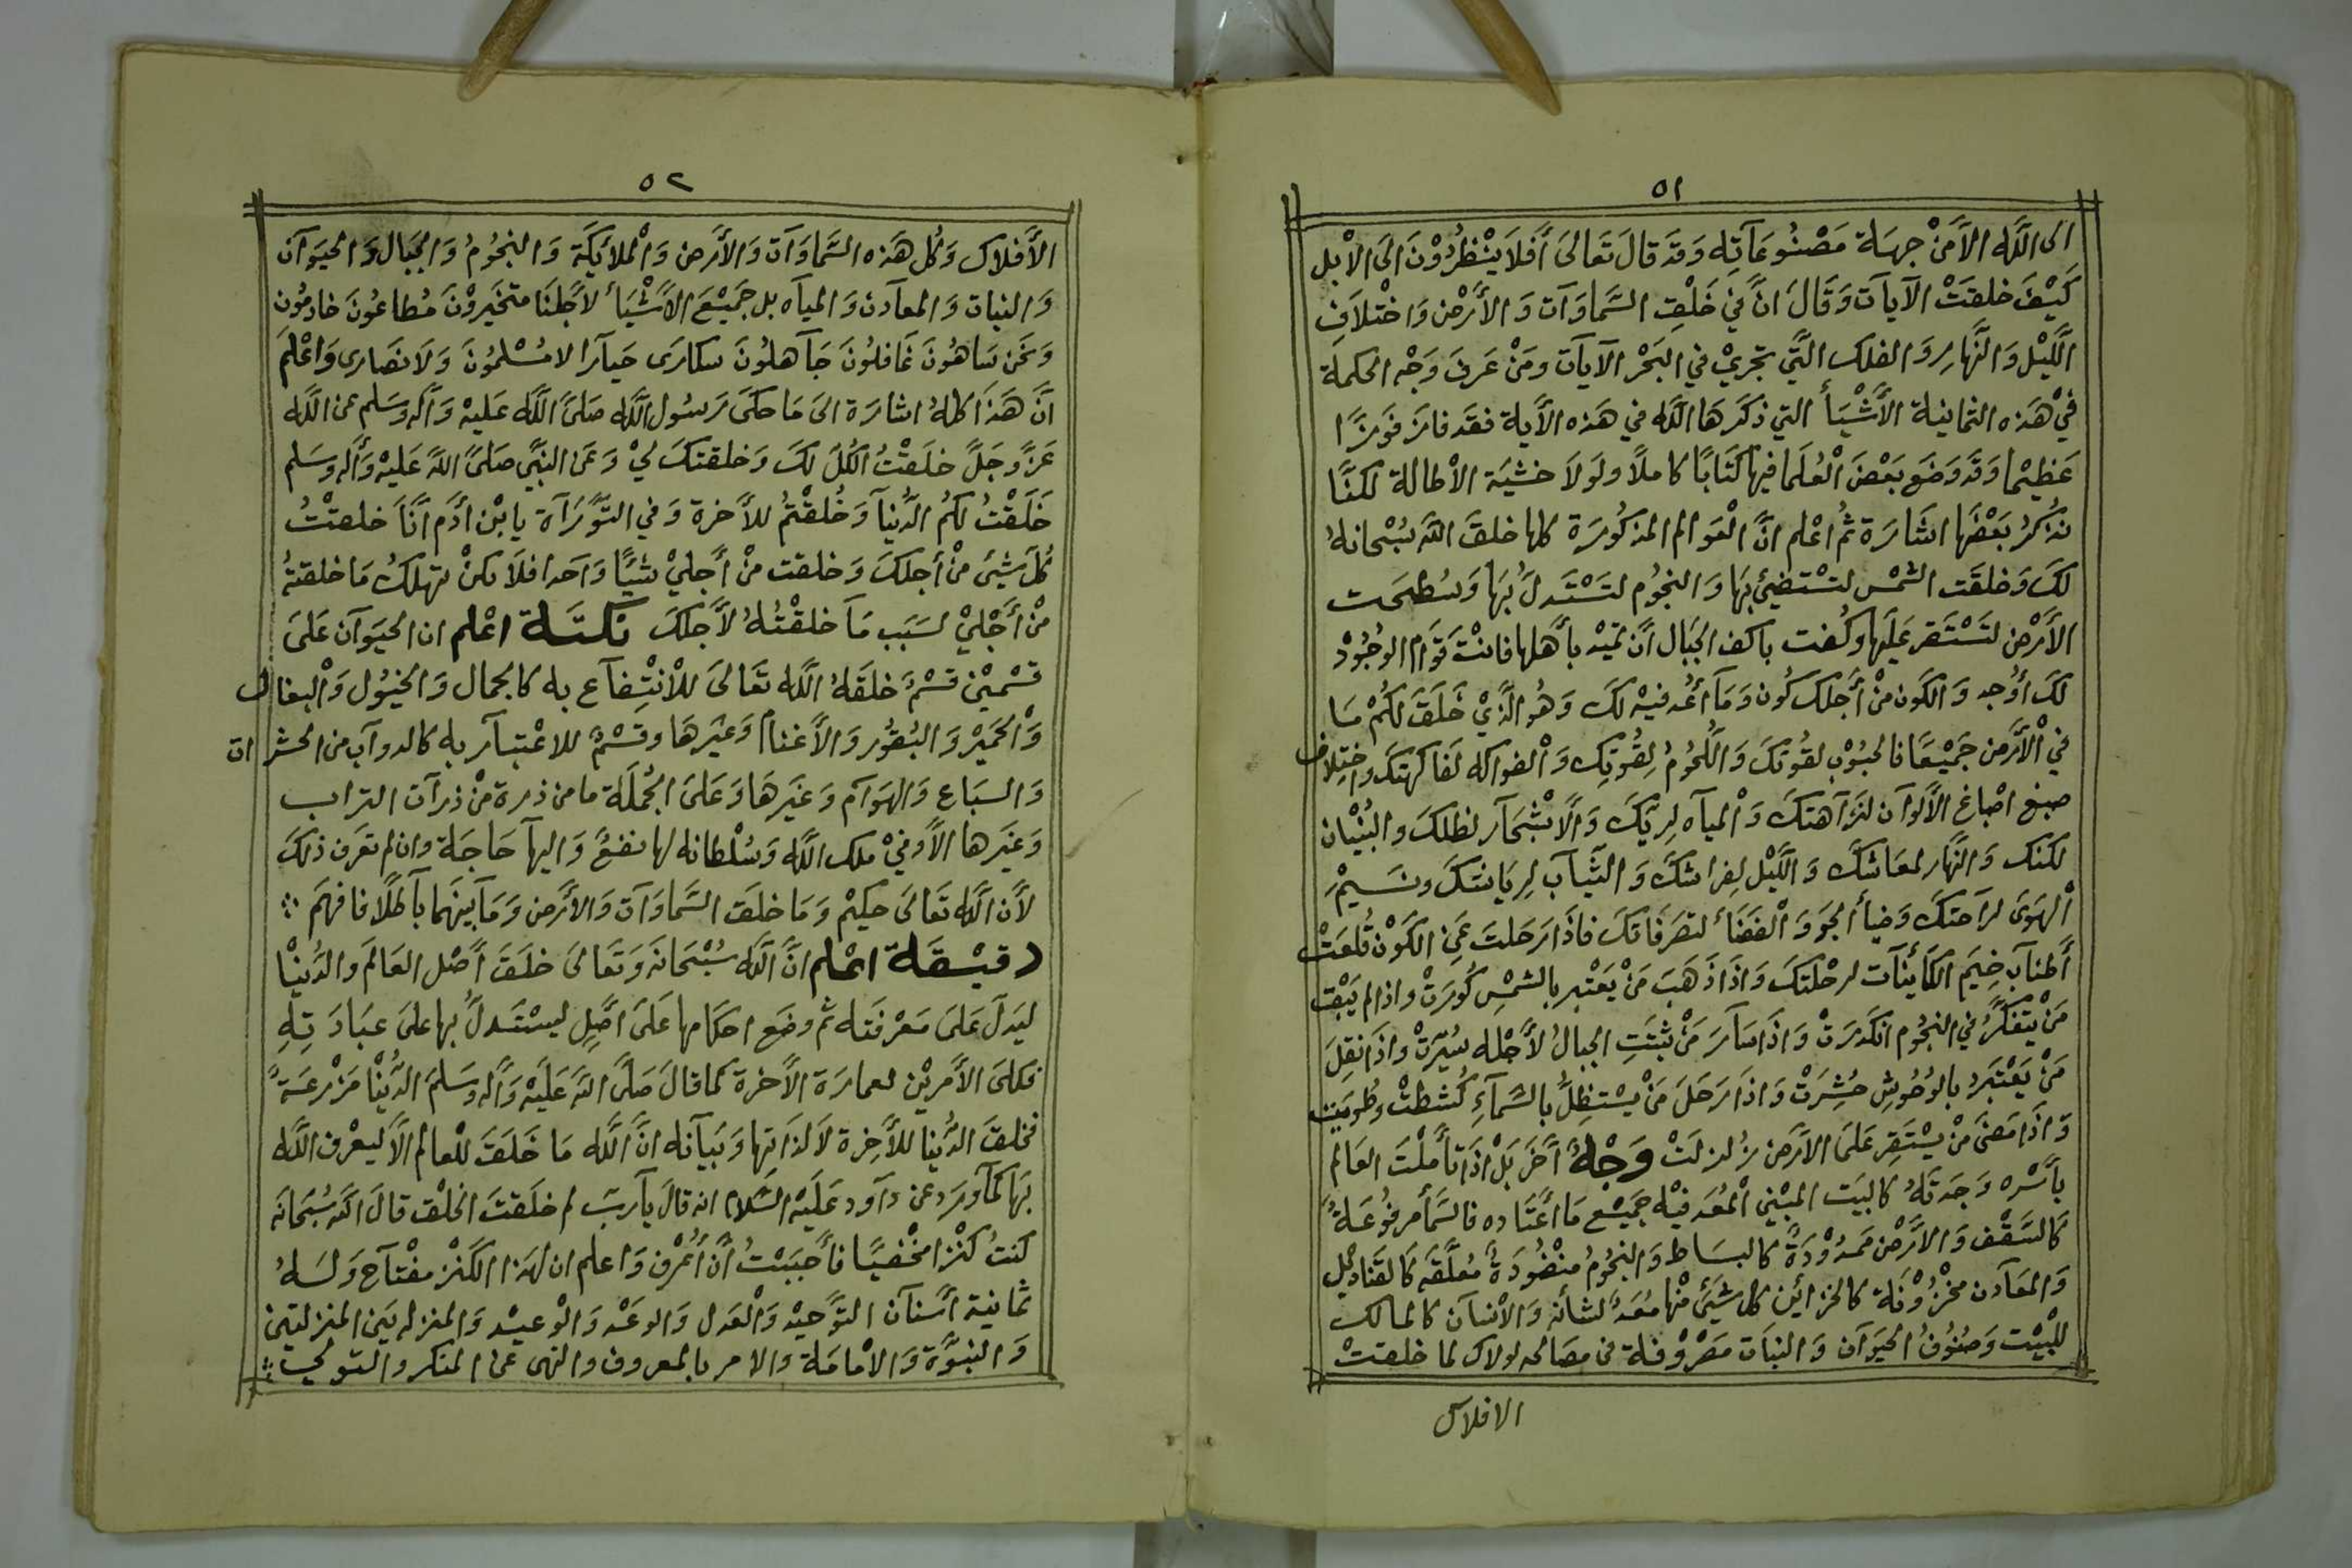 ٥١
الى اللَّه الاَّ مَنْ جِهَة مَصْنُوعَاتِه وَقد قالَ تَعَالىَ أَفَلاَ يَنْظُرُوْنَ الىَ الاْبل
كَيْفَ خلقَتْ الآيَات وَقَالَ انَّ فيْ خَلْقِ السَّماوَآت وَ الأَرْضْ وَاخْتلاَفِ
اللَّيْل وَ النَّهارِ وَ الفلك الَّتي تجريْ في البَحْر الآيآت ومَنْ عَرفَ وَجْه الحكمة
فيْ هَذه الثمانية الأَشْيَأ التي ذكَرَهَا اللَّه في هَذه الأَية فقَد فازَ فَوزًا
عَظيْما وَقَد وَضَع بَعْضَ الْعُلَما فيها كتَابًا كاملاً ولَولاَ خشْيَة الأطالة لكنَّا
نذْكرُ بَعْضَها اشَارَة ثُم اعْلم انَّ الْعَوالم المذكُورَة كلها خلقَ اللَّه سُبْحانهُ
لكَ وَخلقَت الشمْس لتسْتضيئ بِهَا وَ النجُوْم لتَسْتَدلَّ بُهَا وَسُطحَت
الأَرْضْ لتَسْتَقر عَلَيها وكُفت باكف الجبَال أَن تميْد بأَهلها فانْتَ قَوَام الوجُوْدْ
لكَ أَوُجد وَ الكَون منْ أَجلكَ كُون وَمَا أُعُد فيْه لكَ وَهُو الَّذيْ خَلَقَ لكُمْ مَا
فيْ الأَرَض جَميْعًا فالحُبُوْب لقُوتكَ وَ اللُّحُومُ لِقُوتِك وَ الْفواكه لفَاكهتكَ واختِلاف
صبغ اصْباغ الأَلوآن لنَزآهتكَ وَ الْمياه لِريّكَ وَ الأَشْجَآر لظلكَ والبُنْيان
لكنكَ وَ النَّهَار لمعَاشكَ وَ اللَّيْل لِفراشكَ وَ الثَيآب لِريَاشتكَ ونَسيْم
الْهوَى لرَاحتكَ وَضيأ الجَو وَ الْفَضَأ لتصَرفَاتكَ فاذَا رَحَلتَ عَن الكَوْن قُلعَتْ
أَطنآب خِيَم الكَأينَآت لرحْلتكَ وَ اذَا ذَهَبَ مَنْ يَعْتبر بالشمْس كُورَتْ واذالم يَبْق
مَنْ يتَفكَّرُ في النجُوم انكَدرَتْ وَ اذَا سَآرَ مَنْ ثبَّتَتِ الجبالُ لأَجْله سُيّرَتْ واذَا نقِلَ
مَنْ يَعْتبَرُ بالوُحُوشِ حُشِرَتْ وَ اذَا رَحَلَ مَنْ يسْتظِلَّ بالسَّمَآءِ كُشطتْ وطُويَت
وَ اذَا مَضَى مَنْ يسْتَقِر عَلىَ الاَرَض زُلزلَتْ وَجْهٌ أَخَر بَلْ اذَا تأَملْتَ العَالَم
بأَسْره وَجَدتَهُ كالبَيَت المَبْني الْمُعَد فيْه جَميْع مَا أَعَتَاده فالسَّمأ مرفُوعَةً
كَالسَّقْف وَ الاَرَْض مَمدُوْدَةً كالبسَاط وَ النجُومُ منْضُودَةً مُعلَّقه كَالقنَاديْل
وَ المعَآدن مخْزُوْنة كالخزأين كل شَئَ منْها مُعَدً لشأنه وَ الاْنسَآن كالمالك
للْبيْت وَصُنُوْفُ الحيَوآن وَ النبَات مَصْرُوْفة في مصَالحه لولاك لما خلقتْ
الافلاك
٥٢
الأَفلاك وَكُل هَذه السَّماوَآت وَ الأَرَض وَ الْملائِكَة وَ النجُومُ وَ الجْبَال وَ الحيَوآن
وَ النبات وَ المعآدن وَ الميآه بل جَميْعَ الاَشْيَأ لأَجْلنَا متخَيروْنَ مُطاعُونَ خادمُون
وَ نحَن سَاهُونَ غَافلُونَ جَآهلُونَ سكارَى حيَآرا لا مُسْلمُونَ وَ لاَ نصَارى وَاعْلَم
انَّ هَذا كلهُ اشارَة الىَ مَا حكَى رَسُول اللَّه صَلىَّ اللَّه عَليْه وَآله وسَلم عن اللَّه
عَزَّ وَجَلَّ خلَقْتُ الكُلّ لكَ وَخلقتكَ ليْ وَ عَن النبَّي صَلىَّ اللَّه عَليْه وَآله وَسَلم
خَلَقْتُ لكُم الدُّنيآ وَخُلقْتُمُ للأَخرة وَفي التَّوَرَآة يابْن أَدَم انَّاَ خلقتْتُ
كُلَ شَئَ منْ أَجلكَ وَخلقت منْ أَجليْ شيًا وَ احَدا فلاَ تكنْ تهلكُ مَا خلقتهُ
منْ أَجْليْ لسَبَب مَآ خلقْتُهُ لأَجلكَ نكتَة اعْلم ان الحيَوآن عَلىَ
قسْميْن قسْمٌ خلقَهُ اللَّه تَعَالىَ للاْنْتِفآع به كالجمال وَ الخيُول وَ الْبغال
وَ الْحَميْر وَ البُقوُر وَ الأَغنام وَغيْرهَا وقسْمٌ للاعْتبآر به كالدوآب من الحشرات
وَ السبَاع وَ الهوَآم وَ غَيرهَا وَعَلىَ الجُملَة ما من ذرة منْ ذرآت التراب
وَ غيَرها الاَّ وفيْ ملك اللَّه وَسُلْطانه لها نفعٌ وَ اليهآ حَاجَة وان لم تعَرف ذلكَ
لأَن اللَّه تَعَالىَ حكيْم وَ مَا خلقَ السَّماوَآت وَ الأَرَض وَ مَا بينَهما بَآطلًا فافهَم
دقيْقَة اعْلم انَّ اللَّه سُبْحَانَه وَتَعَالىَ خلَقَ أَصْل العَالَم والدُّنيْا
ليَدلَ عَلىَ مَعْرفَته ثم وضَع احكَامها عَلىَ أَصْلٍ ليسْتَدلَّ بها علىَ عبَادَتِهِ
فكلىَ الأَمريْن لعمارَة الأَخرة كما قالَ صَلىَّ اللَّه عَليَْه وَآله وسَلمَ الدُّنْيا مَزْرعَةً
فخلقَ الدُّنيا للأَخِرة لاَ لذاتها وَبَيآنه انَّ اللَّه مَا خَلَقَ للْعالم الاَّ ليعْرف اللَّه
بَها كَمآ ورَد عن دآود عَليَْه السَّلام انه قالَ يآربّ لم خلَقتَ الخلْق قالَ اللَّه سُبَحَانَه
كنتُ كَنْزا مخْفيًا فأَحبَبْتُ أَن أُعْرف وَ اعلم ان لهَذا الكَنْز مفْتاَح وَلَهُ
ثمانية أَسَنآن التَّوحيْد وَ الْعَدل وَ الوعْد وَ الْوعيْد وَ المنزلة بَين المنزلتين
وَ النبوَّة وَ الأمامَة والامر بالمعروف والنهى عن المنكر والتولي